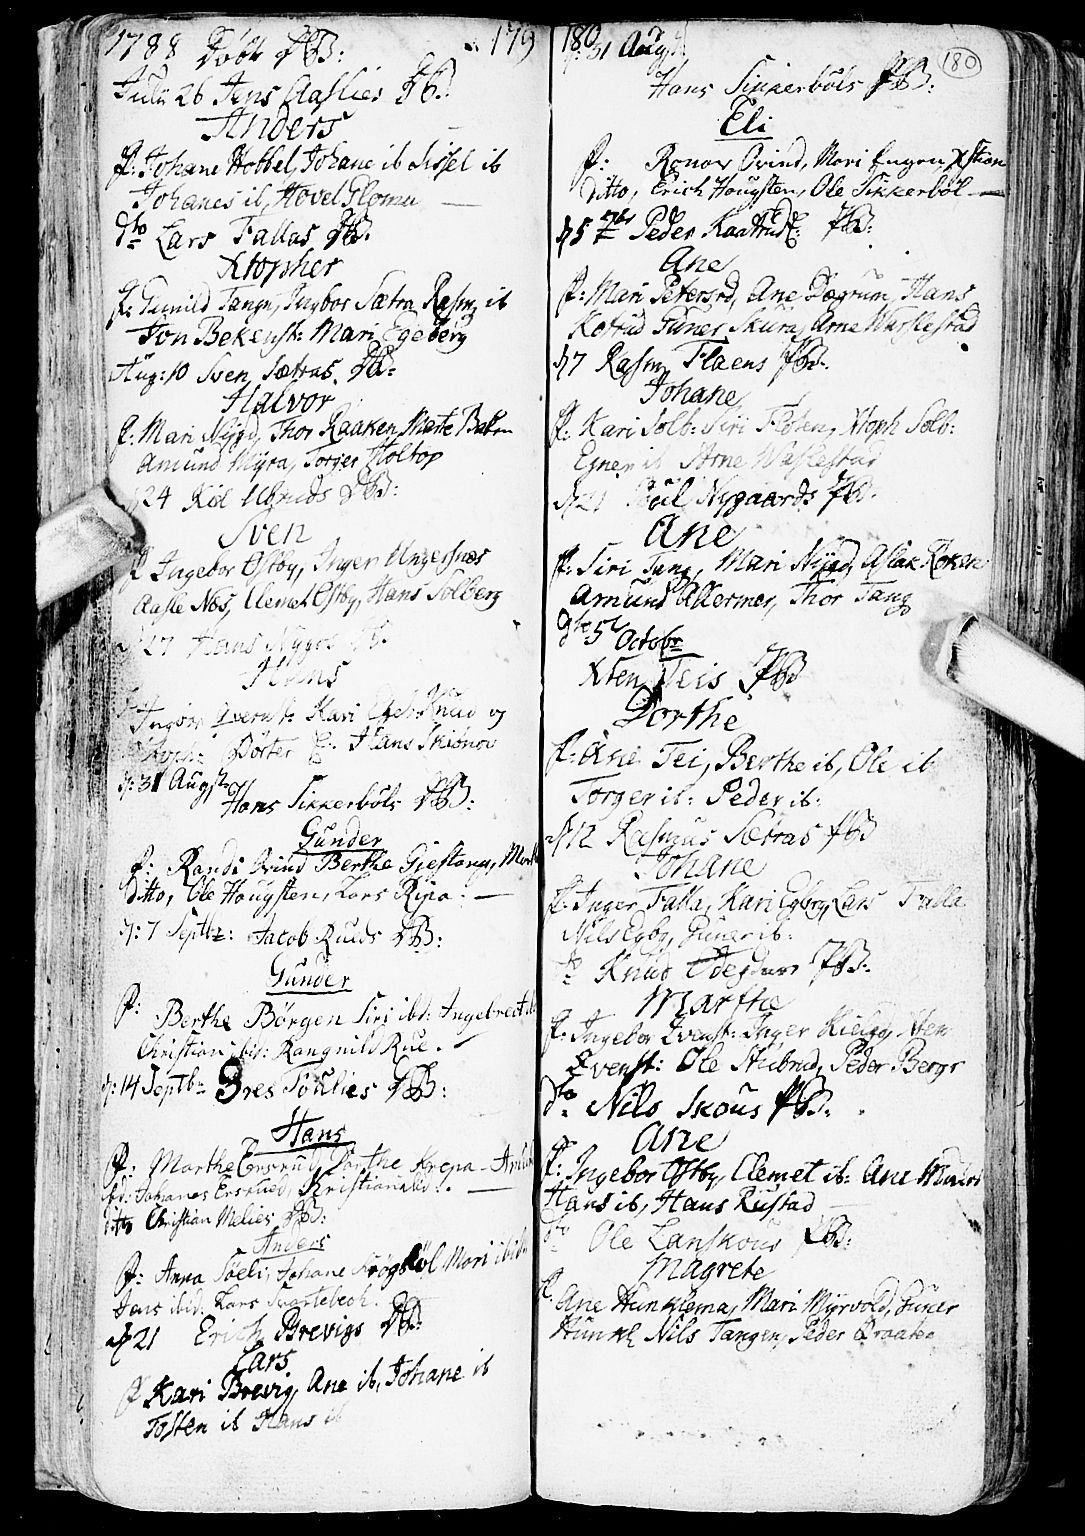 1788 Døbt DB: 179
Julii 26 Jens Aaslies DB:
Anders
f: Johane Hobbel, Johane ib Sissel ib
Johanes ib, Hovel Glomu
dto Lars Fallas DB:
Xtopher
f: Gunild Tangn, Ingbor Sætra, Rasm, ib
Jon Bekenst: Mari Egeberg
Aug: 10 Sven Sætras DB:
Halvor
f: Mari Nygd, Thor Raaken Marte Baken
Amund Myra, Torger Holtop
d 24 DB:
Sven
f Ingebor Østby, Inger Ungersnes
Aasle Nos, Clemet Østby, Hans Solberg
27 Hans
Hans
Ingbor Qvernst: Kari Knud og
Dorter Hans Skiønou
d: 31 Augst
Hans Sikkerbøls DB:
Gunder
f: Randi Ovind Berthe Giestang, Mart
Ditto, Ole Haugsten, Lars Ripa: —
d: 7 Septbr: Jacob Ruuds DB:
Gunder
f: Berthe Børgen Siri ibd: Ingebreet ib
Christian ibid: Rangnild Rue.
d: 14 Septbr Ores Tøilies DB:
Hans
f: Marthe Ersrud, Dorthe Krepa - Amund
ibd: Johanes Ersrued, Kristian ibid: —
ditto Christian Melies DB:
Anders
f: Anna Søeli, Johane Krøgsbøl Mari ibid
Jens ibid: Lars Svartebech.
d 21 Erich Brevigs DB:
Lars
f Kari Brevig, Ane ib, Johane ib
Tosten ib Hans ib
180
d: 31 Aug
180
Hans Sikkerbøls PB:
Eli
f: Ronov Ovind, Mari Engen, Xstian
Ditto, Erich Haugsten, Ole Sikkerbøl —
d 5 7br Peder Kaatrud PB:
Ane
f: Mari Petersrd, Ane Dægrum, Hans
Kotrud Guner Skura, Arne Warkestad
d 7 Rasm, Flaens PB:
Johane
f: Kari Solb: Siri Floten, Xtoph Solb:
Egner ib Arne Wakestad
d 21 Poul Nygaards PB:
Ane
f: Siri Tang, Mari Nygd, Aslak Roken
Amund Allermer, Thor Tang
d 5t Octobr
Xten Teis PB
Dorthe
f: Ane Tei, Berthe ib, Ole ib
Torger ib: Peder ib:
d 12 Rasmus Sætras PB
Johane
f: Inger Falla, Kari Egbrg, Lars Falla
Nils Egbg, Guner ib:
dto Knud Ødegdars PB:
Martha
f: Ingebor Qvenst: Inger Xten
Qvenst: Ole Stubrud, Peder Bergr
dto Nils Skous PB:
Ane
f: Ingebor Østby, Clemet ib: Ane
Hans ib, Hans Rustad
dto Ole Lanskous PB:
Magrete
f: Ane Hunklema, Mari Myrvold, Guner
Hunkl Nils Tangen, Peder Braaten